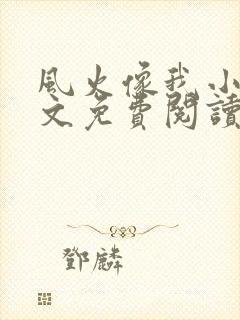 風火像我小
文免費閱讀
鄧麟